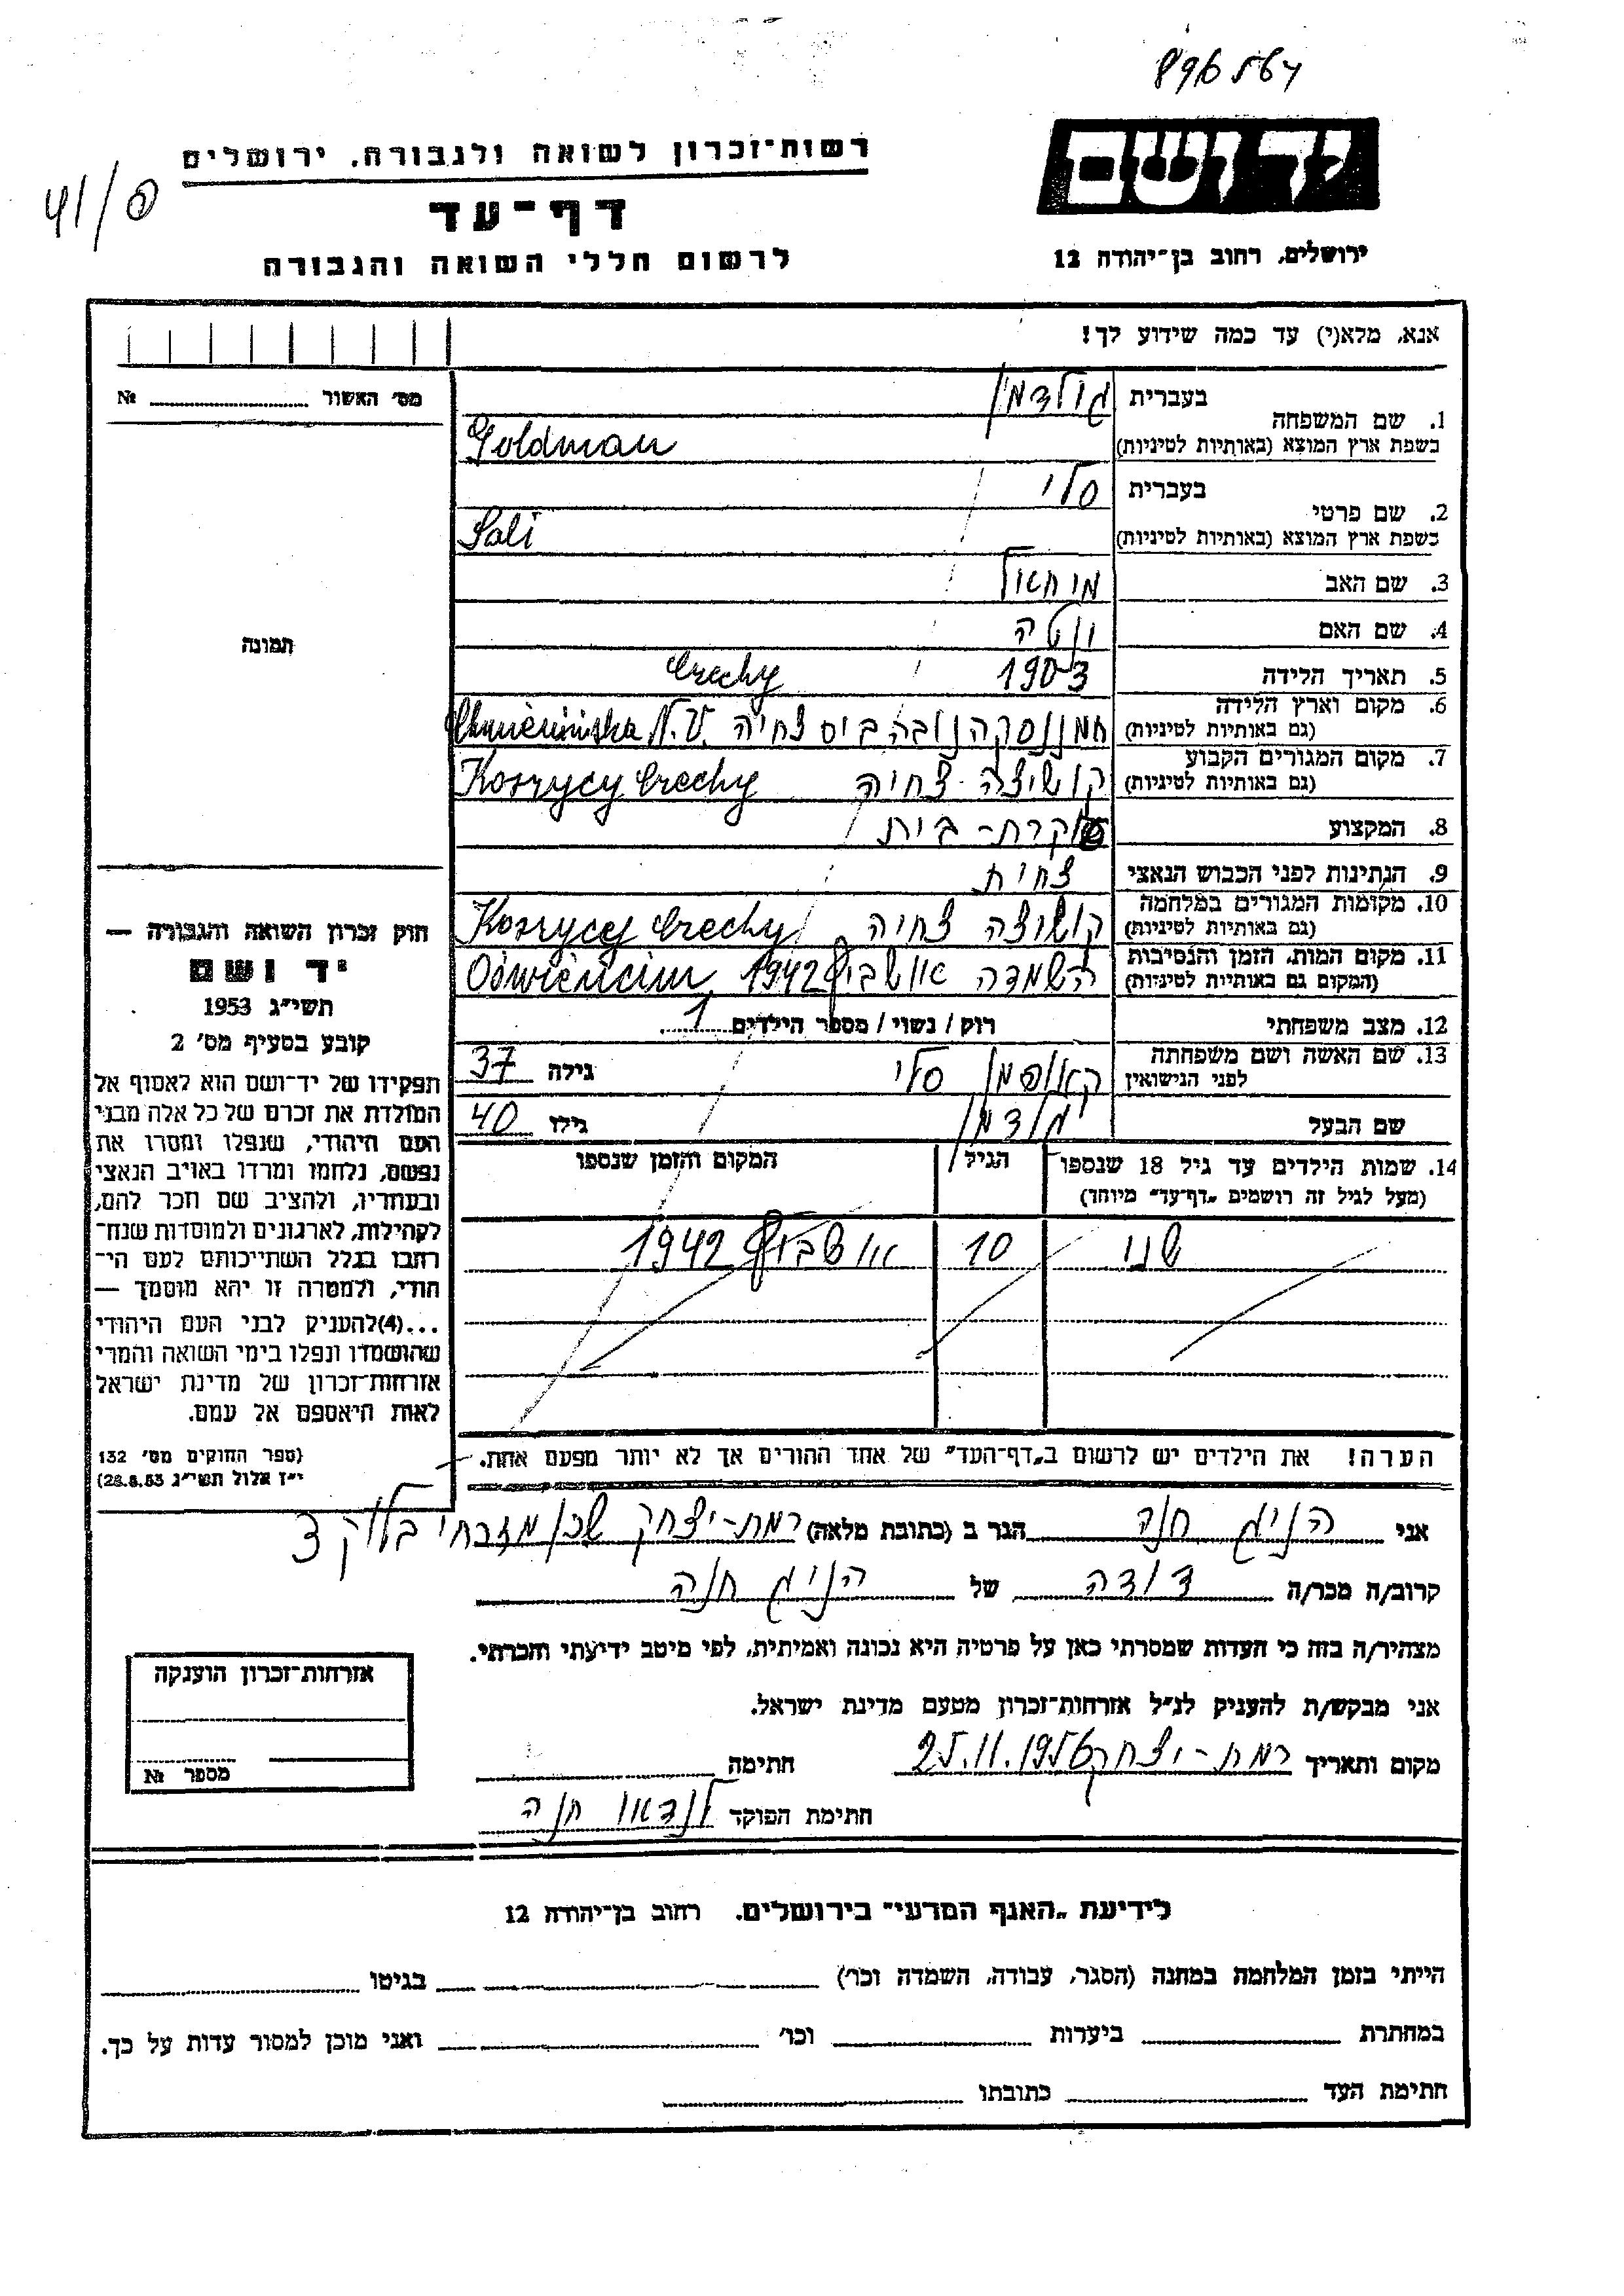 יד ושם
ירושלים, רחוב בן־יהודה 12
רשות־זכרון לשואה ולגבורה, ירושלים
דף־עד
לרשום חללי השואה והגבורה
אנא, מלא(י) עד כמה שידוע לך!
מס׳ האשור № 
1. שם המשפחה בעברית גולדמן
בשפת ארץ המוצא (באותיות לטיניות) Goldman
2. שם פרטי בעברית סלי
בשפת ארץ המוצא (באותיות לטיניות) Sali
3. שם האב
4. שם האם
5. תאריך הלידה 1903 Czechy
6. מקום וארץ הלידה
(גם באותיות לטיניות) N.V.
7. מקום המגורים הקבוע
(גם באותיות לטיניות) קושיצה - צחיה Koszycy Czechy
8. המקצוע עקרת-בית
9. הנתינות לפני הכבוש הנאצי צחית
10. מקומות המגורים במלחמה
(גם באותיות לטיניות) קושיצה צחיה Koszycy Czechy
11. מקום המות, הזמן והנסיבות
(המקום גם באותיות לטיניות) השמדה אושביץ 1942 Oświencim
12. מצב משפחתי רוק / נשוי / מספר הילדים 1
13. שם האשה ושם משפחתה
לפני הנישואין קאופמן סלי גילה 37
שם הבעל גילו 40
14. שמות הילדים עד גיל 18 שנספו הגיל המקום והזמן שנספו
(מעל לגיל זה רושמים „דף־עד״ מיוחד)
10 אושביץ 1942
הערה! את הילדים יש לרשום ב„דף־העד״ של אחד ההורים אך לא יותר מפעם אחת.
תמונה
חוק זכרון השואה והגבורה —
יד ושם
תשי״ג 1953
קובע בסעיף מס׳ 2
תפקידו של יד־ושם הוא לאסוף אל
המולדת את זכרם של כל אלה מבני
העם היהודי, שנפלו ומסרו את
נפשם, נלחמו ומרדו באויב הנאצי
ובעוזריו, ולהציב שם וזכר להם,
לקהילות, לארגונים ולמוסדות שנח־
רבו בגלל השתייכותם לעם הי־
הודי, ולמטרה זו יהא מוסמך —
...(4)להעניק לבני העם היהודי
שהושמדו ונפלו בימי השואה והמרי
אזרחות־זכרון של מדינת ישראל
לאות היאספם אל עמם.
(ספר החוקים מס׳ 132
י״ז אלול תשי״ג 28.8.53)
אני הניג חנה הגר ב (כתובת מלאה) רמת-יצחק שכון מזרחי בלוק 3
קרוב/ה מכר/ה דודה של הניג חנה
מצהיר/ה בזה כי העדות שמסרתי כאן על פרטיה היא נכונה ואמיתית, לפי מיטב ידיעתי והכרתי.
אני מבקש/ת להעניק לנ״ל אזרחות־זכרון מטעם מדינת ישראל.
מקום ותאריך רמת-יצחק 25.11.1956 חתימה
חתימת הפוקד לנדאו חנה
אזרחות־זכרון הוענקה
מספר №
לידיעת „האגף המדעי״ בירושלים, רחוב בן־יהודה 12
הייתי בזמן המלחמה במחנה (הסגר, עבודה, השמדה וכו׳) בגיטו
במחתרת ביערות וכו׳ ואני מוכן למסור עדות על כך.
חתימת העד כתובתו